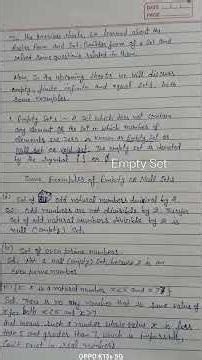 DATE
PAGE
In the previous sheets, we learned about the
Roster form and Set-builder form of a Set and
solved some questions related to them.
Now, In the upcoming sheets we will discuss
empty, finite, infinite and equal sets, with
some examples.
Empty Sets :- A Set which does not contain
any element or the set in which number of
elements are zero is known as Empty Set or
Null set or void set. The empty set is denoted
by the symbol { } or
Empty Set
Some Examples of Empty or Null Sets
Set of odd natural numbers divisible by 2.
Sol: Odd numbers are not divisible by 2. Therefore
Set of odd natural numbers divisible by 2 is
null (Empty) Set.
Set of even prime numbers.
Sol: Not a null (empty) Set, because 2 is an
even prime number.
{x : x is a natural number, x < 5 and x > 7}
Sol. There is no any number that is same value of
x for both x < 5 and x > 7
And means such a number whose value is less
than 5 and greater than 7 which is impossible,
Can't exist in real numbers
OPPO K13x 5G